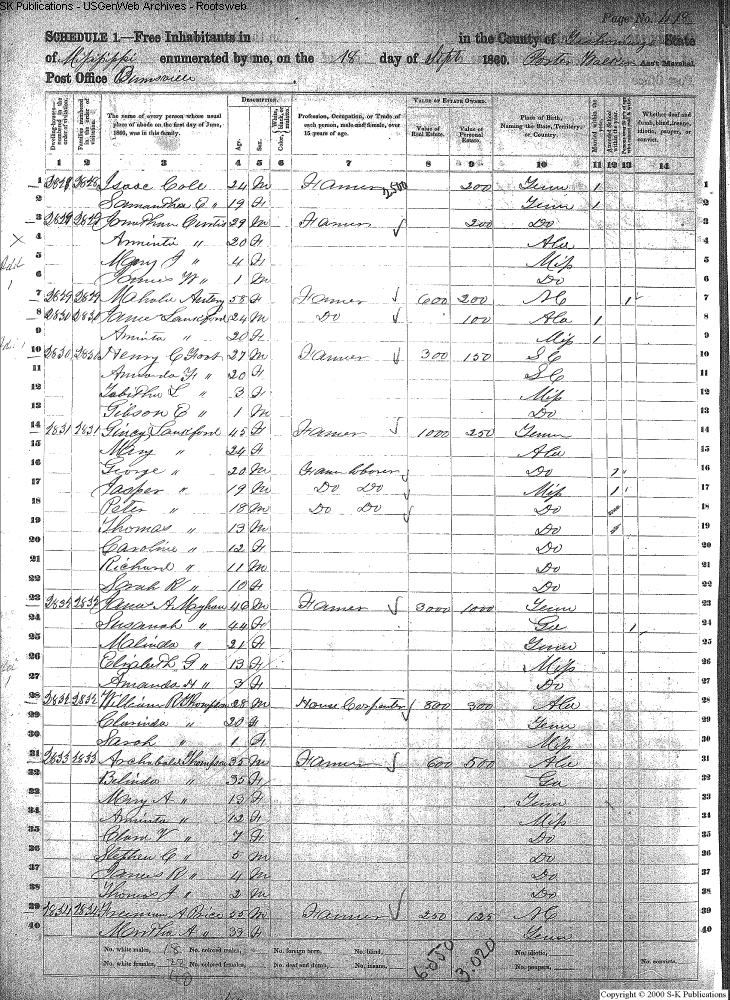 SK Publications - USGenWeb Archives - Rootsweb
Page No. 418
SCHEDULE 1.—Free Inhabitants in in the County of State
of Mississippi enumerated by me, on the 18 day of Sept 1860. Ass't Marshal
Post Office Burnsville
Dwelling-houses—numbered in the order of visitation.
Families numbered in the order of visitation.
The name of every person whose usual place of abode on the first day of June, 1860, was in this family.
DESCRIPTION.
Age.
Sex.
Color, White, black, or mulatto.
Profession, Occupation, or Trade of each person, male and female, over 15 years of age.
VALUE OF ESTATE OWNED.
Value of Real Estate.
Value of Personal Estate.
Place of Birth, Naming the State, Territory, or Country.
Married within the year.
Attended School within the year.
Whether deaf and dumb, blind, insane, idiotic, pauper, or convict.
1 2 3 4 5 6 7 8 9 10 11 12 13 14
1 2828 2828 Isaac Cole 24 M Farmer 2500 200 Tenn 1 1
2 Samantha E " 19 F Tenn 1 2
3 2829 2829 Jonathan Curtis 29 M Farmer 200 Do 3
4 Aminta " 20 F Ala 4
5 Mary J " 4 F Miss 5
6 James W " 1 M Do 6
7 2829 2829 Mahalie 58 F Farmer 600 200 NC 1 7
8 2830 2830 James Lankford 24 M Do 100 Ala 1 8
9 Aminta " 20 F Miss 1 9
10 2830 2830 Henry C 27 M Farmer 300 150 SC 10
11 Amanda F " 20 F SC 11
12 Tabitha L " 3 F Miss 12
13 Gibson C " 1 M Do 13
14 2831 2831 Lankford 45 F Farmer 1000 250 Tenn 14
15 Mary " 24 F Ala 15
16 George " 20 M Farm laborer Do 1 16
17 Jasper " 19 M Do Do Miss 1 17
18 Peter " 18 M Do Do Do 18
19 Thomas " 13 M Do 19
20 Caroline " 12 F Do 20
21 Richard " 11 M Do 21
22 Sarah R " 10 F Do 22
23 2832 2832 James A Mayhan 46 M Farmer 3000 1000 Tenn 23
24 Susanah " 44 F Geo 1 24
25 Malinda " 21 F Tenn 25
26 Elizabeth G " 13 F Miss 26
27 Amanda H " 3 F Do 27
28 2832 2832 William R Thompson 28 M House Carpenter 800 300 Ala 28
29 Clarinda " 20 F Tenn 29
30 Sarah " 1 F Miss 30
31 2833 2833 Archibald Thompson 35 M Farmer 600 500 Ala 31
32 Belinda " 35 F Ga 32
33 Mary A " 13 F Tenn 33
34 Aminta " 12 F Miss 34
35 Clara V " 7 F Do 35
36 Stephen C " 5 M Do 36
37 James R " 4 M Do 37
38 Thomas J " 2 M Do 38
39 2834 2834 Freeman A Price 55 M Farmer 250 125 NC 39
40 Martha A " 39 F Tenn 40
No. white males, 18 No. colored males, No. foreign born, No. blind, No. idiotic,
No. white females, 22 No. colored females, No. deaf and dumb, No. insane, 6550 3.020 No. paupers, No. convicts,
40
Copyright © 2000 S-K Publications